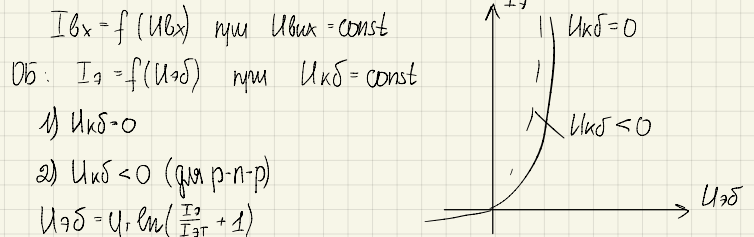 Iвх = f(Uвх) при Uвих = const
ОБ: Iэ = f(Uэб) при Uкб = const
1) Uкб = 0
2) Uкб < 0 (для p-n-p)
Uэб = φт ln(Iэ/Iэт + 1)
Uкб = 0
Uкб < 0
Uэб